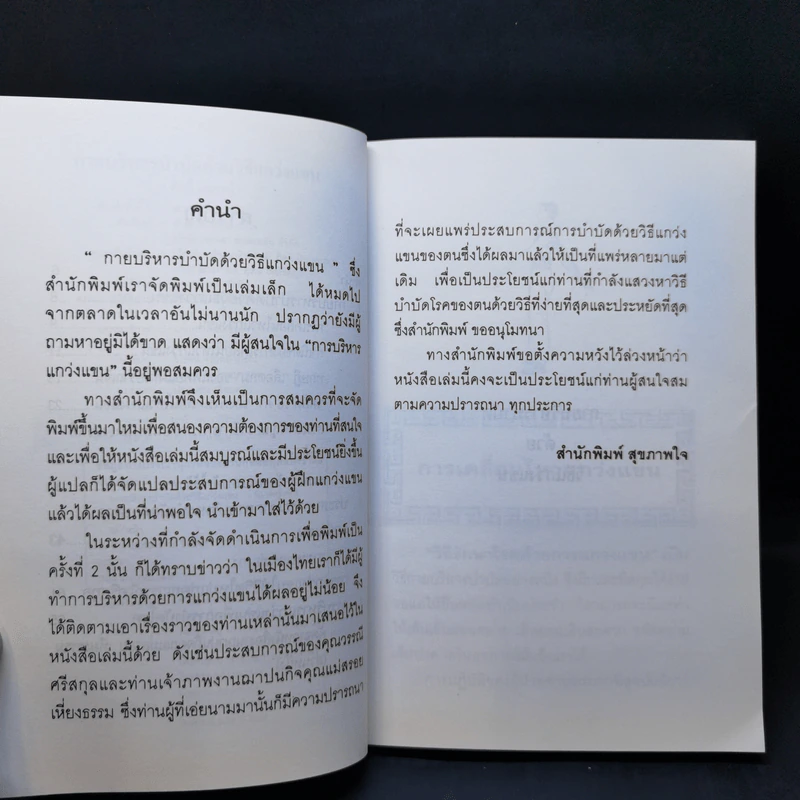 คำนำ
“ กายบริหารบำบัดด้วยวิธีแกว่งแขน ” ซึ่ง
สำนักพิมพ์เราจัดพิมพ์เป็นเล่มเล็ก ได้หมดไป
จากตลาดในเวลาอันไม่นานนัก ปรากฏว่ายังมีผู้
ถามหาอยู่มิได้ขาด แสดงว่า มีผู้สนใจใน “การบริหาร
แกว่งแขน” นี้อยู่พอสมควร
ทางสำนักพิมพ์จึงเห็นเป็นการสมควรที่จะจัด
พิมพ์ขึ้นมาใหม่เพื่อสนองความต้องการของท่านที่สนใจ
และเพื่อให้หนังสือเล่มนี้สมบูรณ์และมีประโยชน์ยิ่งขึ้น
ผู้แปลก็ได้จัดแปลประสบการณ์ของผู้ฝึกแกว่งแขน
แล้วได้ผลเป็นที่น่าพอใจ นำเข้ามาใส่ไว้ด้วย
ในระหว่างที่กำลังจัดดำเนินการเพื่อพิมพ์เป็น
ครั้งที่ 2 นั้น ก็ได้ทราบข่าวว่า ในเมืองไทยเราก็ได้มีผู้
ทำการบริหารด้วยการแกว่งแขนได้ผลอยู่ไม่น้อย จึง
ได้ติดตามเอาเรื่องราวของท่านเหล่านั้นมาเสนอไว้ใน
หนังสือเล่มนี้ด้วย ดังเช่นประสบการณ์ของคุณวรรณี
ศรีสกุลและท่านเจ้าภาพงานฌาปนกิจคุณแม่สรอย
เหี่ยงธรรม ซึ่งท่านผู้ที่เอ่ยนามมานั้นก็มีความปรารถนา
ที่จะเผยแพร่ประสบการณ์การบำบัดด้วยวิธีแกว่ง
แขนของตนซึ่งได้ผลมาแล้วให้เป็นที่แพร่หลายมาแต่
เดิม เพื่อเป็นประโยชน์แก่ท่านที่กำลังแสวงหาวิธี
บำบัดโรคของตนด้วยวิธีที่ง่ายที่สุดและประหยัดที่สุด
ซึ่งสำนักพิมพ์ ขออนุโมทนา
ทางสำนักพิมพ์ขอตั้งความหวังไว้ล่วงหน้าว่า
หนังสือเล่มนี้คงจะเป็นประโยชน์แก่ท่านผู้สนใจสม
ตามความปรารถนา ทุกประการ
สำนักพิมพ์ สุขภาพใจ